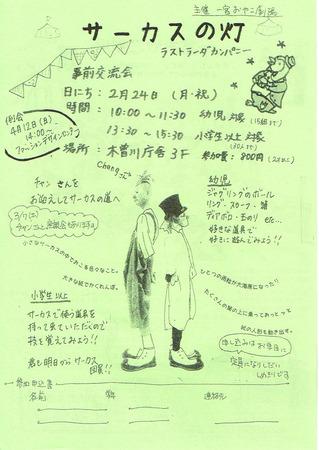 主催 一宮おやこ劇場
サーカスの灯
ラストラーダカンパニー
事前交流会
日にち：2月24日（月・祝）
時間：10:00〜11:30 幼児対象（15組まで）
13:30〜15:30 小学生以上対象
(30人まで)
場所：木曽川庁舎3F
参加費：800円（2才以上）
例会
4月12日(日)
14:00〜
ファッションデザインセンター
Changって
チャンさんを
お迎えしてサーカスの道へ
3/7(土)
小さなサーカスの中でおこる色々なこと。
大きな紙でかくれんぼ。
幼児
ジャグリングのボール
リング・スカーフ・笛
ディアボロ・玉のり など…
好きな道具で
好きに遊んでみよう!!
ひとつの雨粒が大海原になった!!
たくさんの紙の上に乗ってあっとっと
紙の人形も動き出す。
小学生以上
サーカスで使う道具を
持って来ていただくので
技を覚えてみよう!!
君も明日からサーカス
団員!!
申し込みはお早目に
定員になりしだい
しめきりです
参加申込書
名前
学年
連絡先